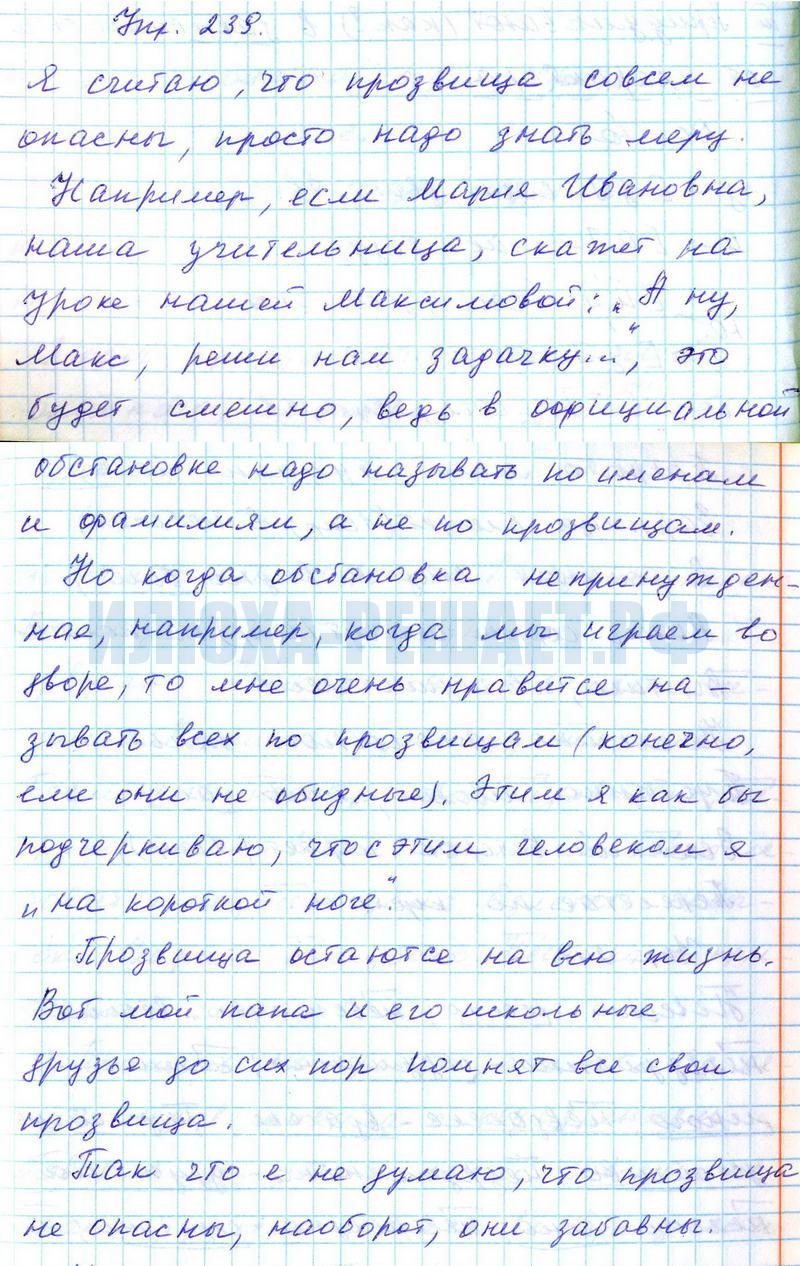 Упр. 239.
Я считаю, что прозвища совсем не
опасны, просто надо знать меру.
Например, если Мария Ивановна,
наша учительница, скажет на
уроке нашей Максимовой: „А ну,
Макс, реши нам задачку...“, это
будет смешно, ведь в официальной
обстановке надо называть по именам
и фамилиям, а не по прозвищам.
Но когда обстановка непринужден-
ная, например, когда мы играем во
дворе, то мне очень нравится на-
зывать всех по прозвищам (конечно,
если они не обидные). Этим я как бы
подчеркиваю, что с этим человеком я
„на короткой ноге“.
Прозвища остаются на всю жизнь.
Вот мой папа и его школьные
друзья до сих пор помнят все свои
прозвища.
Так что я не думаю, что прозвища
не опасны, наоборот, они забавны.
ИЛЮХА-РЕШАЕТ.РФ